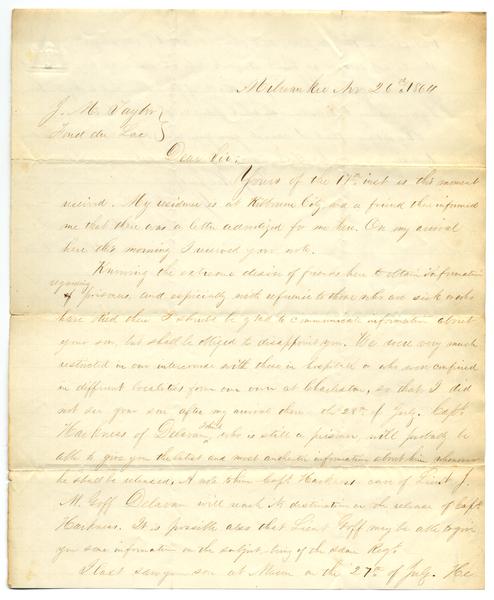 Milwaukee Nov 26th, 1864
J. M. Taylor
Fond du Lac
Dear Sir,
Yours of the 17th inst is this moment
received. My residence is at Kilbourn City, and a friend there informed
me that there was a letter advertized for me here. On my arrival
here this morning I received your note.
Knowing the extreme desire of friends here to obtain information
regarding
of prisoners, and especially with reference to those who are sick
have died there I should be glad to communicate information about
your son, but shall be obliged to disappoint you. We were very much
restricted in our intercourse with those in hospital or who were confined
in different localities from our own at Charleston, so that I did
not see your son after my arrival there the 28th of July. Capt
Harkness of Delavan, who is still a prisoner, will probably be
able to give you the latest and most authentic information about him whenever
he shall be released. A note to him Capt Harkness care of Lieut J.
M. Goff Delavan will reach its destination on the release of Capt
Harkness. It is possible also that Lieut Goff may be able to give
you some information on the subject, being of the same Regt.
I last saw your son at Macon on the 27th of July. He